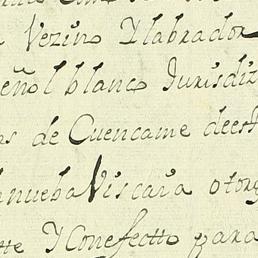 Vezino Y labrador
eñol blanco Jurisdiz
as de Cuencame deest
nueba Viscaia otorg
tte Y Con efectto para